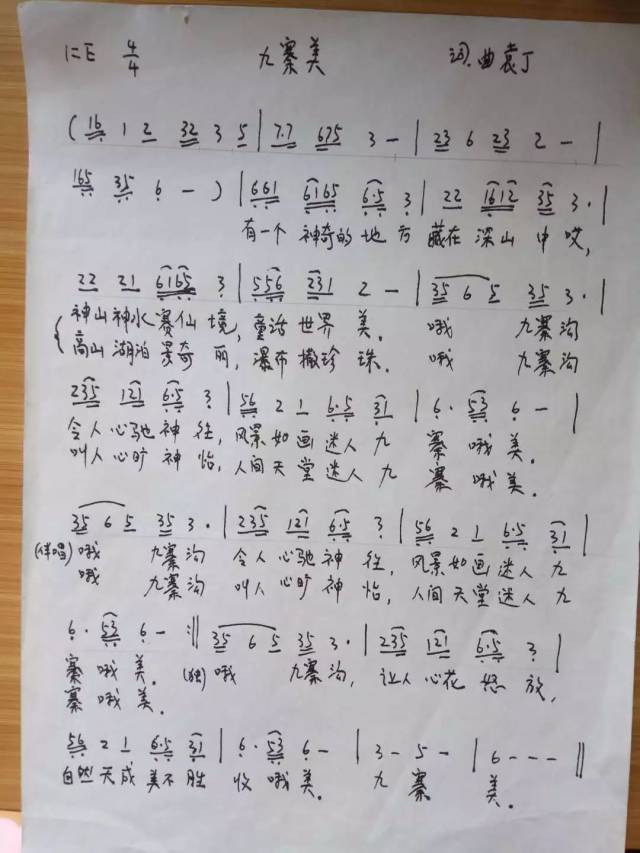 1=E 4/4 九寨美 词.曲袁丁
(16 1 2 32 3 5 | 7.7 675 3 - | 23 6 23 2 - |
165 35 6 - ) | 661 6165 6.5 3 | 22 1612 35 3. |
有一个 神奇的 地方 藏在 深山 中哎,
22 21 6165 3 | 556 231 2 - | 35 6 5 35 3. |
神山 神水 赛仙 境, 童话 世界 美. 哦 九寨沟
高山 湖泊 景奇 丽, 瀑布 撒珍 珠. 哦 九寨沟
235 121 6.5 3 | 56 2 1 6.5 31 | 6. 53 6 - |
令人 心驰 神 往, 风景如画 迷人 九 寨 哦 美.
叫人 心旷 神 怡, 人间天堂 迷人 九 寨 哦 美.
35 6 5 35 3. | 235 121 6.5 3 | 56 2 1 6.5 31 |
(伴唱) 哦 九寨沟 令人 心驰 神 往, 风景如画 迷人 九
哦 九寨沟 叫人 心旷 神 怡, 人间天堂 迷人 九
6. 53 6 - :‖ 35 6 5 35 3. | 235 121 6.5 3 |
寨 哦 美. (独) 哦 九寨沟, 让人 心花 怒 放,
寨 哦 美.
56 2 1 6.5 31 | 6. 53 6 - | 3 - 5 - | 6 - - - ‖
自然 天成 美不 胜 收 哦 美. 九 寨 美.